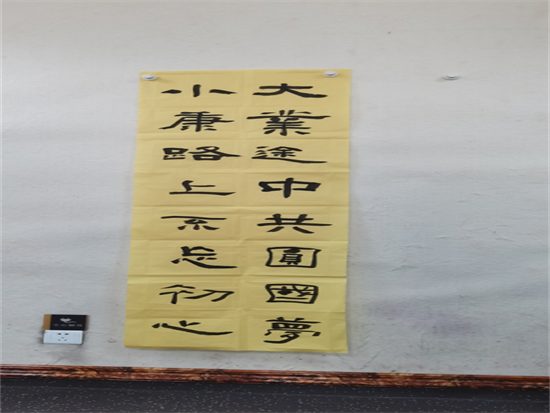 大業途中共圓國夢
小康路上不忘初心